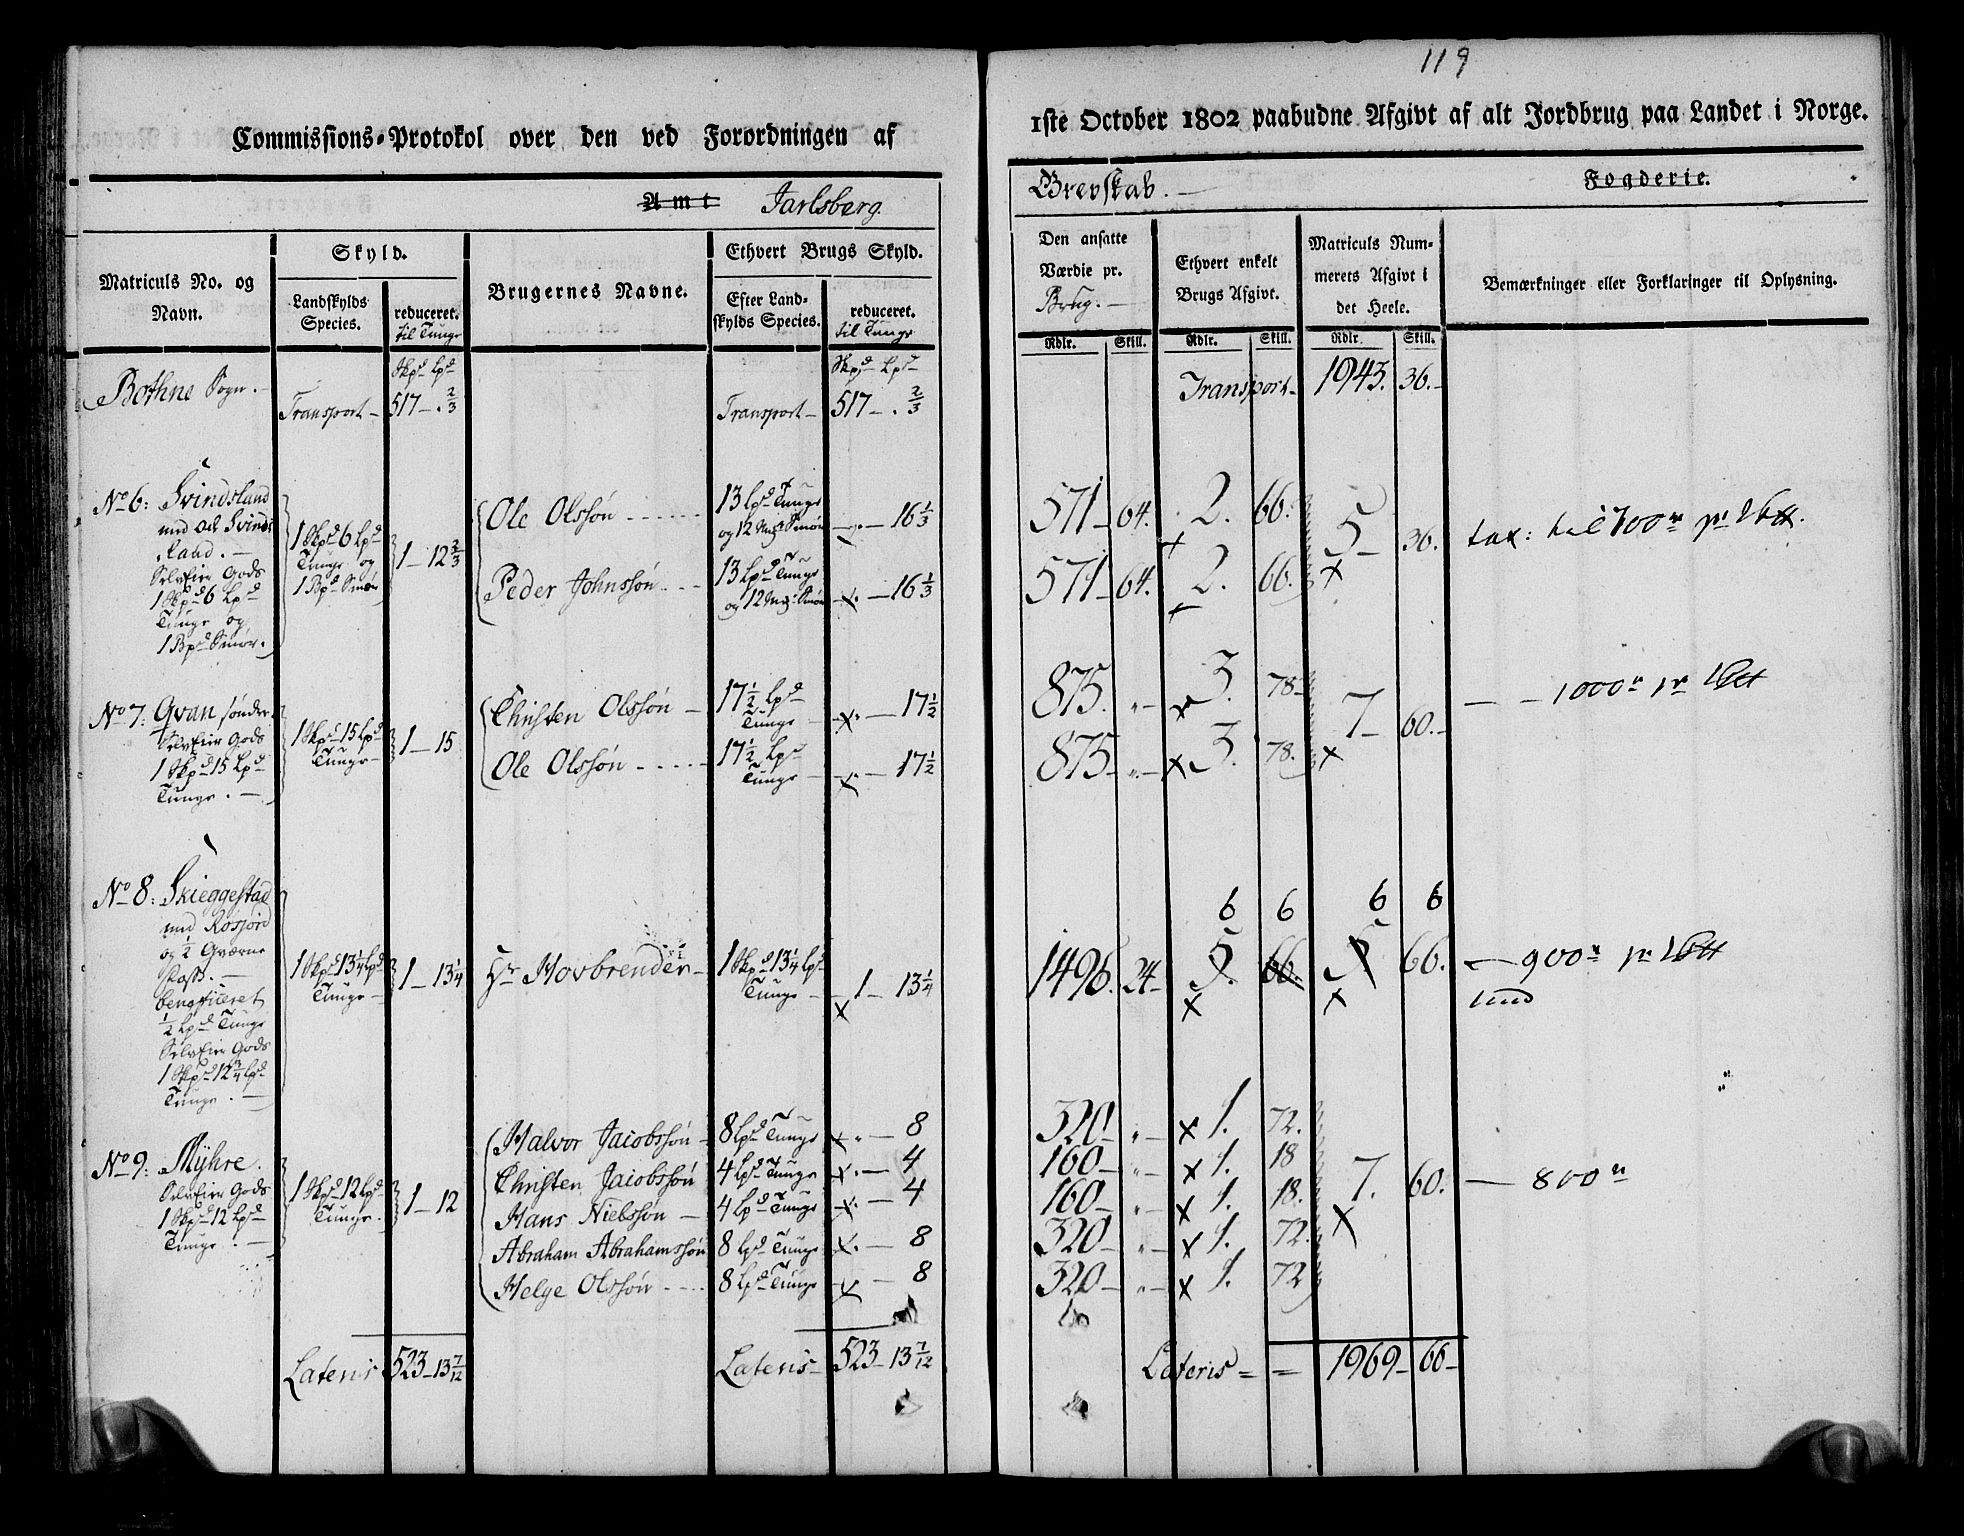 119
Commissions-Protokol over den ved Forordningen af
1ste October 1802 paabudne Afgivt af alt Jordbrug paa Landet i Norge.
Amt Jarlsberg
Grevskab. Fogderie.
Matriculs No. og
Navn.
Skyld.
Landskylds
Species.
reduceret.
til Tunge
Brugernes Navne.
Ethvert Brugs Skyld.
Efter Land-
skylds Species.
reduceret.
til Tunge
Den ansatte
Værdie pr.
Brug.
Ethvert enkelt
Brugs Afgivt.
Matriculs Num-
merets Afgivt i
det Heele.
Bemærkninger eller Forklaringer til Oplysning.
Rdlr. Skill. Rdlr. Skill. Rdlr. Skill.
Skpd Lpd Skpd Lpd
Bothne Sogn. Transport 517 — . 2/3 Transport 517 — . 2/3 Transport 1943. 36.
No 6: Svindsland
med
land.
SelvEier Gods
1 Skpd 6 Lpd
Tunge og
1 Bpd Smør.
1 Skpd 6 Lpd
Tunge og
1 Bpd Smør
1 — 12 2/3
Ole Olssøn 13 Lpd Tunge
og 12 Mrk Smør — 16 1/3 571 64. 2. 66. 5 36. tax: til 700
Peder Johnssøn 13 Lpd Tunge
og 12 Mrk Smør x. — 16 1/3 571 64. 2. 66.
No 7: Qvan sønder
SelvEier Gods
1 Skpd 15 Lpd
Tunge.
1 Skpd 15 Lpd
Tunge
1 — 15
Christen Olssøn 17 1/2 Lpd
Tunge x. — 17 1/2 875. „ 3. 78 7 60. — 1000
Ole Olssøn 17 1/2 Lpd
Tunge x. — 17 1/2 875 „ x 3. 78.
No 8: Skieggestad
med Rosjord
og 1/2 Qværne
benificeret
1/2 Lpd Tunge
SelvEier Gods
1 Skpd 12 3/4 Lpd
Tunge.
1 Skpd 13 1/4 Lpd
Tunge
1 — 13 1/4
Hr Hovbrender 1 Skpd 13 1/4 Lpd
Tunge 1 — 13 1/4
x
6 6 6 6
1496. 24 5. 66. 5 66. — 900
x x
No 9: Myhre.
SelvEier Gods
1 Skpd 12 Lpd
Tunge.
1 Skpd 12 Lpd
Tunge.
1 — 12
Halvor Jacobssøn 8 Lpd Tunge x. — 8 320 „ x 1. 72.
Christen Jacobssøn 4 Lpd Tunge x. — 4 160 „ x 1. 18
Hans Nielssøn 4 Lpd Tunge x. — 4 160 „ x 1. 18. 7. 60. — 800
Abraham Abrahamssøn 8 Lpd Tunge x. — 8 320 „ x 1. 72.
Helge Olssøn 8 Lpd Tunge x — 8 320 „ x 1. 72
Lateris 523 — 13 7/12 Lateris 523 — 13 7/12 Lateris = = 1969 66